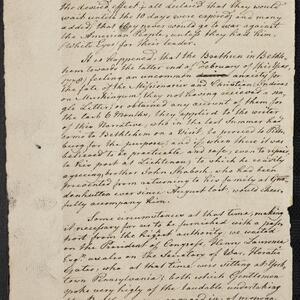 the desired effect & all declared that they would
wait until the 10 days were expired, and many
added, that they never would go to war against
the American People, unless they had him,
(White Eyes) for their leader.
It so happened, that the Brethren in Bethle-
hem toward the latter end of February of this year
feeling an uncommon anxiety for
the fate of the Missionaries and Christian Indians
on Muskingum, they having not received a sin-
gle Letter, or obtained any account of them for
the last 6 Months, they applied to the writer
of this Narrative, who in the last Summer had
come to Bethlehem on a Visit, to go to Pitts-
burg for the purpose, and if when there it was
believed to be practicable and safe, even to repair
to his post at Lichtenau; to which he readily
agreeing, brother John Shabosh, who had been
prevented from returning to his family at Gna-
denhutten ever since August last, would chear-
fully accompany him.
Some circumstances at that time, making
it necessary for us to be furnished with a pass-
port from the highest authority, we waited
on the President of Congress, Henry Laurence
Esqr. as also on the Secretary of War, Horatio
Gates, who at that time were sitting at York
Town Pennsylvania; both which Gentlemen
spoke very highly of the laudable undertaking